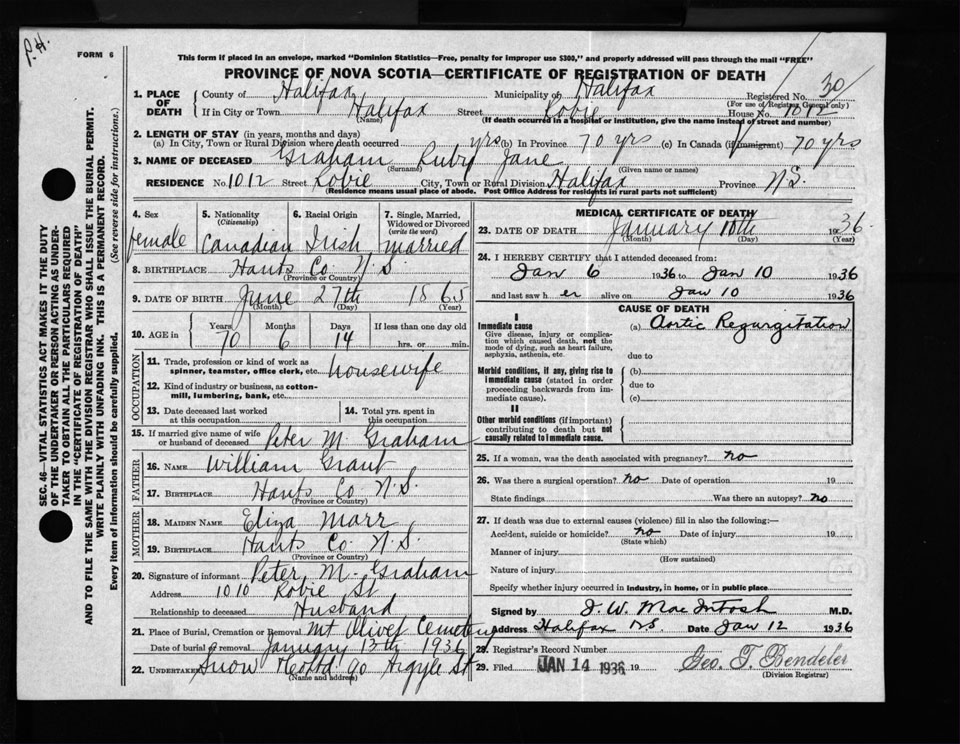 P.H.
FORM 6
This form if placed in an envelope, marked "Dominion Statistics—Free, penalty for improper use $300," and properly addressed will pass through the mail "FREE"
PROVINCE OF NOVA SCOTIA—CERTIFICATE OF REGISTRATION OF DEATH
1. PLACE OF DEATH County of Halifax Municipality of Halifax Registered No. 30
(For use of Registrar General only)
If in City or Town Halifax Street Robie House No. 1012
(Name) (If death occurred in a hospital or institution, give the name instead of street and number)
2. LENGTH OF STAY (in years, months and days)
(a) In City, Town or Rural Division where death occurred yrs (b) In Province 70 yrs (c) In Canada (if immigrant) 70 yrs
3. NAME OF DECEASED Graham Ruby Jane
(Surname) (Given name or names)
RESIDENCE No. 1012 Street Robie City, Town or Rural Division Halifax Province N.S.
(Residence means usual place of abode. Post Office Address for residents in rural parts not sufficient)
4. Sex female
5. Nationality (Citizenship) Canadian
6. Racial Origin Irish
7. Single, Married, Widowed or Divorced (write the word) married
8. BIRTHPLACE Hants Co N.S.
(Province or Country)
9. DATE OF BIRTH June 27th 1865
(Month) (Day) (Year)
10. AGE in Years 70 Months 6 Days 14 If less than one day old hrs. or min.
OCCUPATION
11. Trade, profession or kind of work as spinner, teamster, office clerk, etc. housewife
12. Kind of industry or business, as cotton-mill, lumbering, bank, etc.
13. Date deceased last worked at this occupation
14. Total yrs. spent in this occupation
15. If married give name of wife or husband of deceased Peter M. Graham
FATHER
16. NAME William Grant
17. BIRTHPLACE Hants Co N.S.
(Province or Country)
MOTHER
18. MAIDEN NAME Eliza Marr
19. BIRTHPLACE Hants Co. N.S.
(Province or Country)
20. Signature of informant Peter M. Graham
Address 1010 Robie St
Relationship to deceased Husband
21. Place of Burial, Cremation or Removal Mt Olivet Cemetery
Date of burial or removal January 13th 1936
22. UNDERTAKER Snow & Co Ltd 90 Argyle St
(Name and address)
MEDICAL CERTIFICATE OF DEATH
23. DATE OF DEATH January 10th 1936
(Month) (Day) (Year)
24. I HEREBY CERTIFY that I attended deceased from:
Jan 6 1936 to Jan 10 1936
and last saw h er alive on Jan 10 1936
CAUSE OF DEATH
I
Immediate cause (a) Aortic Regurgitation
Give disease, injury or complication which caused death, not the mode of dying, such as heart failure, asphyxia, asthenia, etc.
due to
Morbid conditions, if any, giving rise to immediate cause (stated in order proceeding backwards from immediate cause).
(b)
due to
(c)
II
Other morbid conditions (if important) contributing to death but not causally related to immediate cause.
25. If a woman, was the death associated with pregnancy? no
26. Was there a surgical operation? no Date of operation 19
State findings Was there an autopsy? no
27. If death was due to external causes (violence) fill in also the following:—
Accident, suicide or homicide? no Date of injury 19
(State which)
Manner of injury
(How sustained)
Nature of injury
Specify whether injury occurred in industry, in home, or in public place
Signed by J. W. MacIntosh M.D.
Address Halifax N.S. Date Jan 12 1936
28. Registrar's Record Number
29. Filed JAN 14 1936 19 Geo. T. Bendeler
(Division Registrar)
SEC. 46—VITAL STATISTICS ACT MAKES IT THE DUTY
OF THE UNDERTAKER OR PERSON ACTING AS UNDER-
TAKER TO OBTAIN ALL THE PARTICULARS REQUIRED
IN THE "CERTIFICATE OF REGISTRATION OF DEATH"
AND TO FILE THE SAME WITH THE DIVISION REGISTRAR WHO SHALL ISSUE THE BURIAL PERMIT.
WRITE PLAINLY WITH UNFADING INK. THIS IS A PERMANENT RECORD.
Every item of information should be carefully supplied. (See reverse side for instructions.)